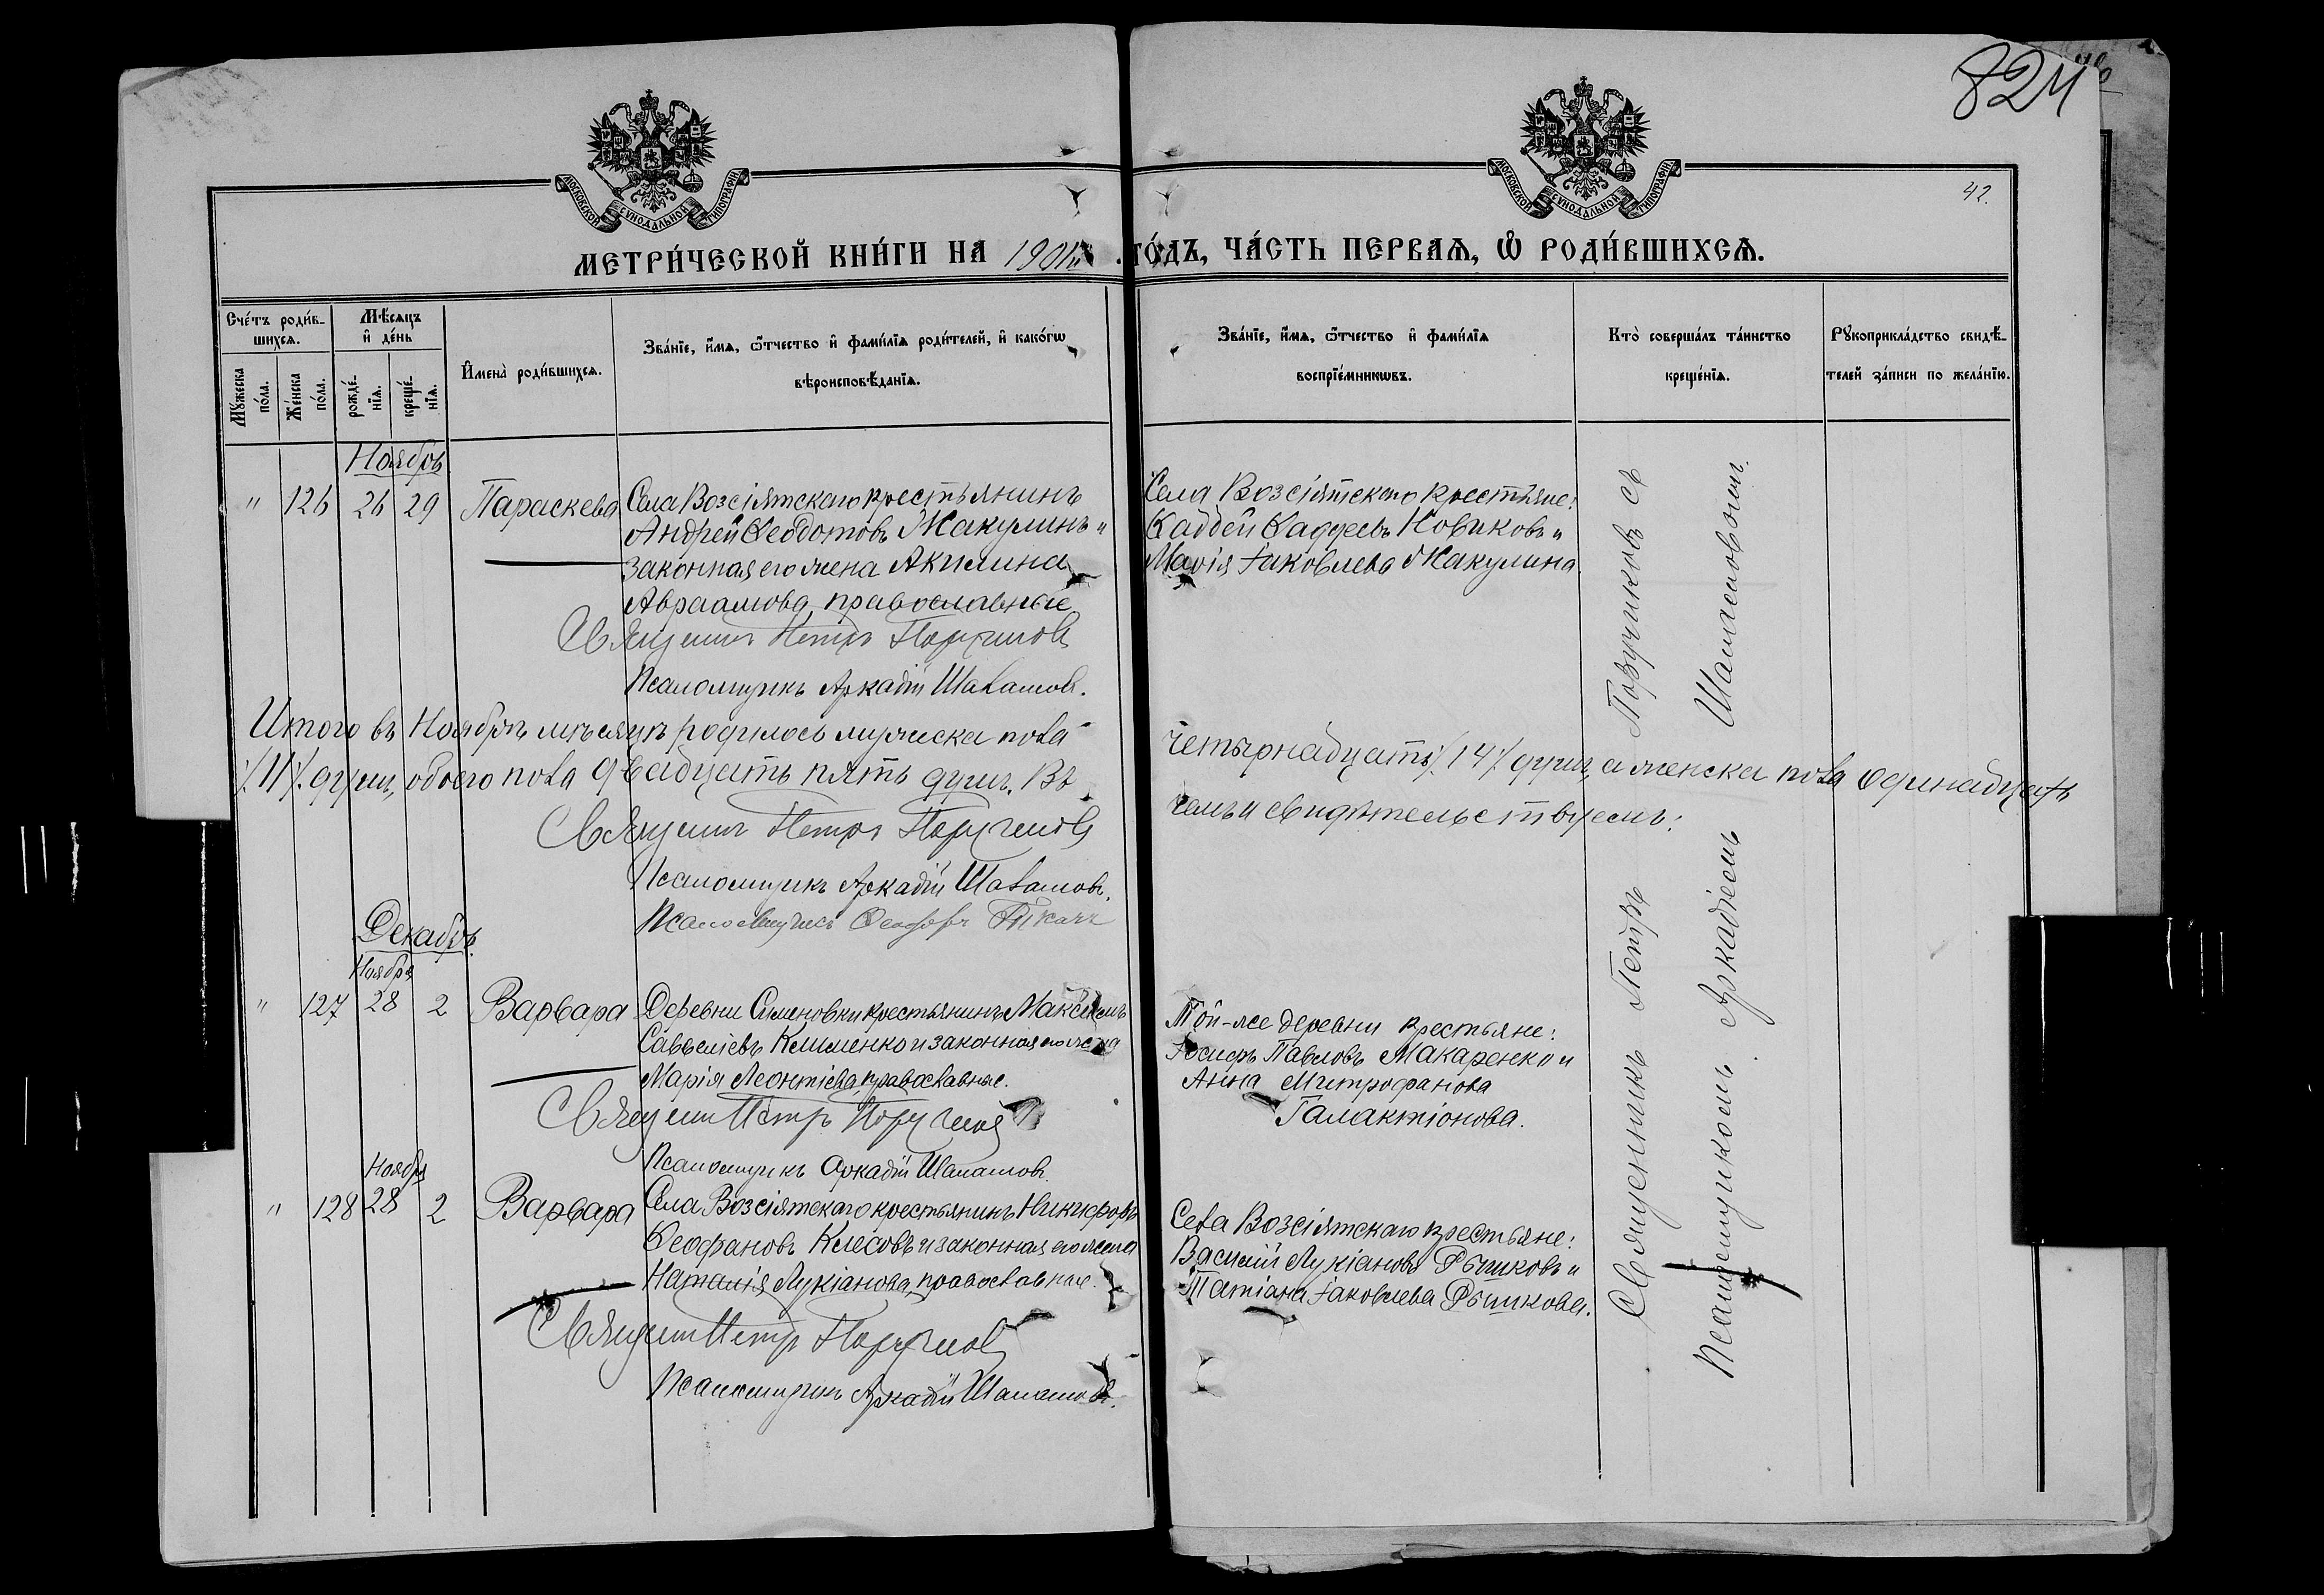 824
42.
МОСКОВСКОЙ СѴНОДАЛЬНОЙ ТИПОГРАФІИ
МОСКОВСКОЙ СѴНОДАЛЬНОЙ ТИПОГРАФІИ
МЕТРИ́ЧЕСКОЙ КНИ́ГИ НА 1901й ГО́ДЪ, ЧА́СТЬ ПЕРВАѦ, Ѡ҆ РОДИ́ВШИХСѦ.
Сче́тъ роди́в-
шихсѧ.
Мꙋ́жеска по́ла.
Же́нска по́ла.
Мѣ́сѧцъ
и҆ де́нь
рожде́-
нїѧ.
креще́-
нїѧ.
И҆мена̀ роди́вшихсѧ.
Зва́нїе, и҆́мѧ, ѻ҆́тчество и҆ фами́лїѧ роди́телей, и҆ како́гѡ
вѣроисповѣ́данїѧ.
Зва́нїе, и҆́мѧ, ѻ҆́тчество и҆ фами́лїѧ
воспрїе́мникѡвъ.
Кто̀ соверша́лъ та́инство
креще́нїѧ.
Рꙋкоприкла́дство свидѣ́-
телей за́писи по жела́нїю.
Ноябрь
" 126 26 29 Параскева
Села Возсіятскаго крестьянинъ
Андрей Ѳеодотовъ Жакулинъ и
законная его жена Акилина
Авраамова, православные
Священникъ Петръ Поручиковъ
Псаломщикъ Аркадій Шаламовъ.
Села Возсіятскаго крестьяне:
Ѳаддей Ѳаддеевъ Новиковъ и
Марія Іаковлева Жакулина
Итого въ Ноябрѣ мѣсяцѣ родилось мужеска пола четырнадцать ⁒14⁒ душъ, а женска пола одинадцать
⁒11⁒ душъ, обоего пола двадцать пять душъ. Въ чемъ и свидѣтельствуемъ:
Священникъ Петръ Поручиковъ
Псаломщикъ Аркадій Шаламовъ.
Псаломщикъ Ѳеодоръ
Декабрь
Ноября
" 127 28 2 Варвара
Деревни Семеновки крестьянинъ Максимъ
Савеліевъ Клименко и законная его жена
Марія Леонтіева, православные.
Священникъ Петръ Поручиковъ
Псаломщикъ Аркадій Шаламовъ.
Той-же деревни крестьяне:
Іосифъ Павловъ Макаренко и
Анна Митрофанова
Галактіонова.
Ноября
" 128 28 2 Варвара
Села Возсіятскаго крестьянинъ Никифоръ
Ѳеофановъ Клесовъ и законная его жена
Наталія Лукіанова, православные.
Священникъ Петръ Поручиковъ
Псаломщикъ Аркадій Шаламовъ.
Села Возсіятскаго крестьяне:
Василій Лукіановъ Рѣшиковъ и
Татіана Іаковлева Рѣшикова.
Священникъ Петръ Поручиковъ съ
Псаломщикомъ Аркадіемъ Шаламовымъ.